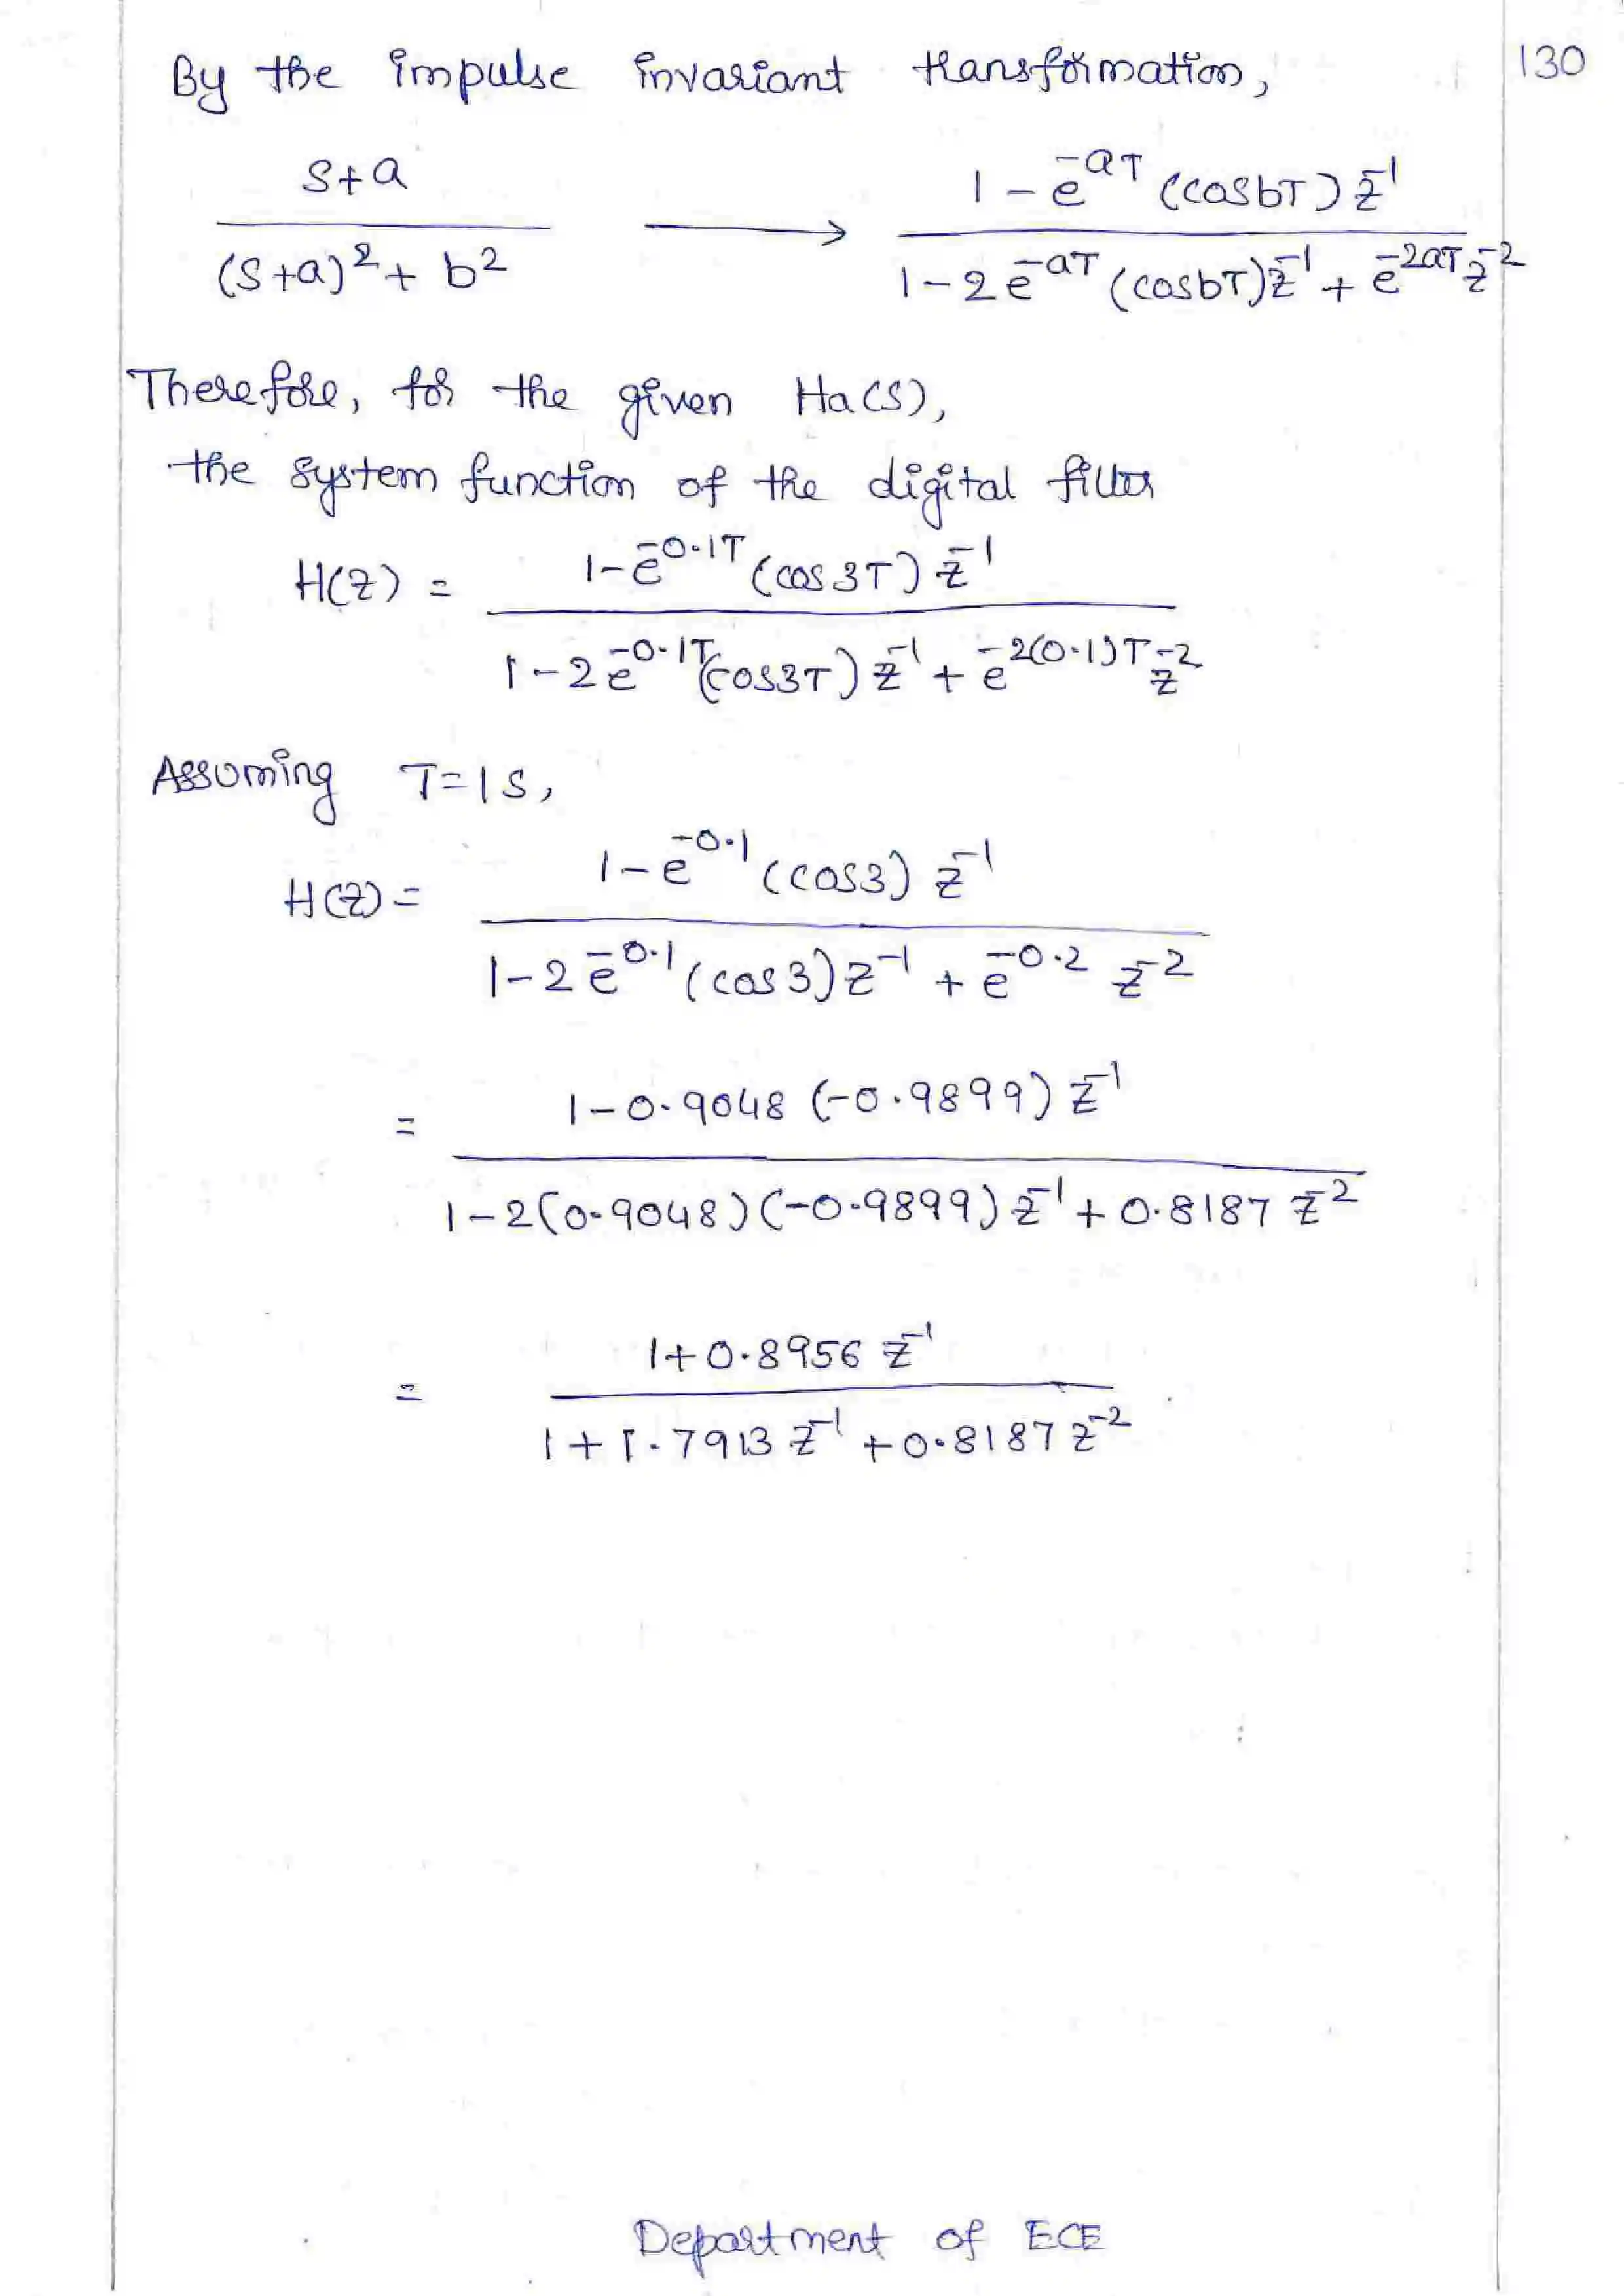 By the impulse invariant transformation, 130
s+a / (s+a)² + b² ⟶ 1 - e^-aT (cosbT) z^-1 / 1 - 2e^-aT (cosbT)z^-1 + e^-2aT z^-2
Therefore, for the given Ha(s),
the system function of the digital filter
H(z) = 1 - e^-0.1T (cos3T) z^-1 / 1 - 2e^-0.1T (cos3T) z^-1 + e^-2(0.1)T z^-2
Assuming T=1s,
H(z) = 1 - e^-0.1 (cos3) z^-1 / 1 - 2e^-0.1 (cos3)z^-1 + e^-0.2 z^-2
= 1 - 0.9048 (-0.9899) z^-1 / 1 - 2(0.9048)(-0.9899) z^-1 + 0.8187 z^-2
= 1 + 0.8956 z^-1 / 1 + 1.7913 z^-1 + 0.8187 z^-2
Department of ECE